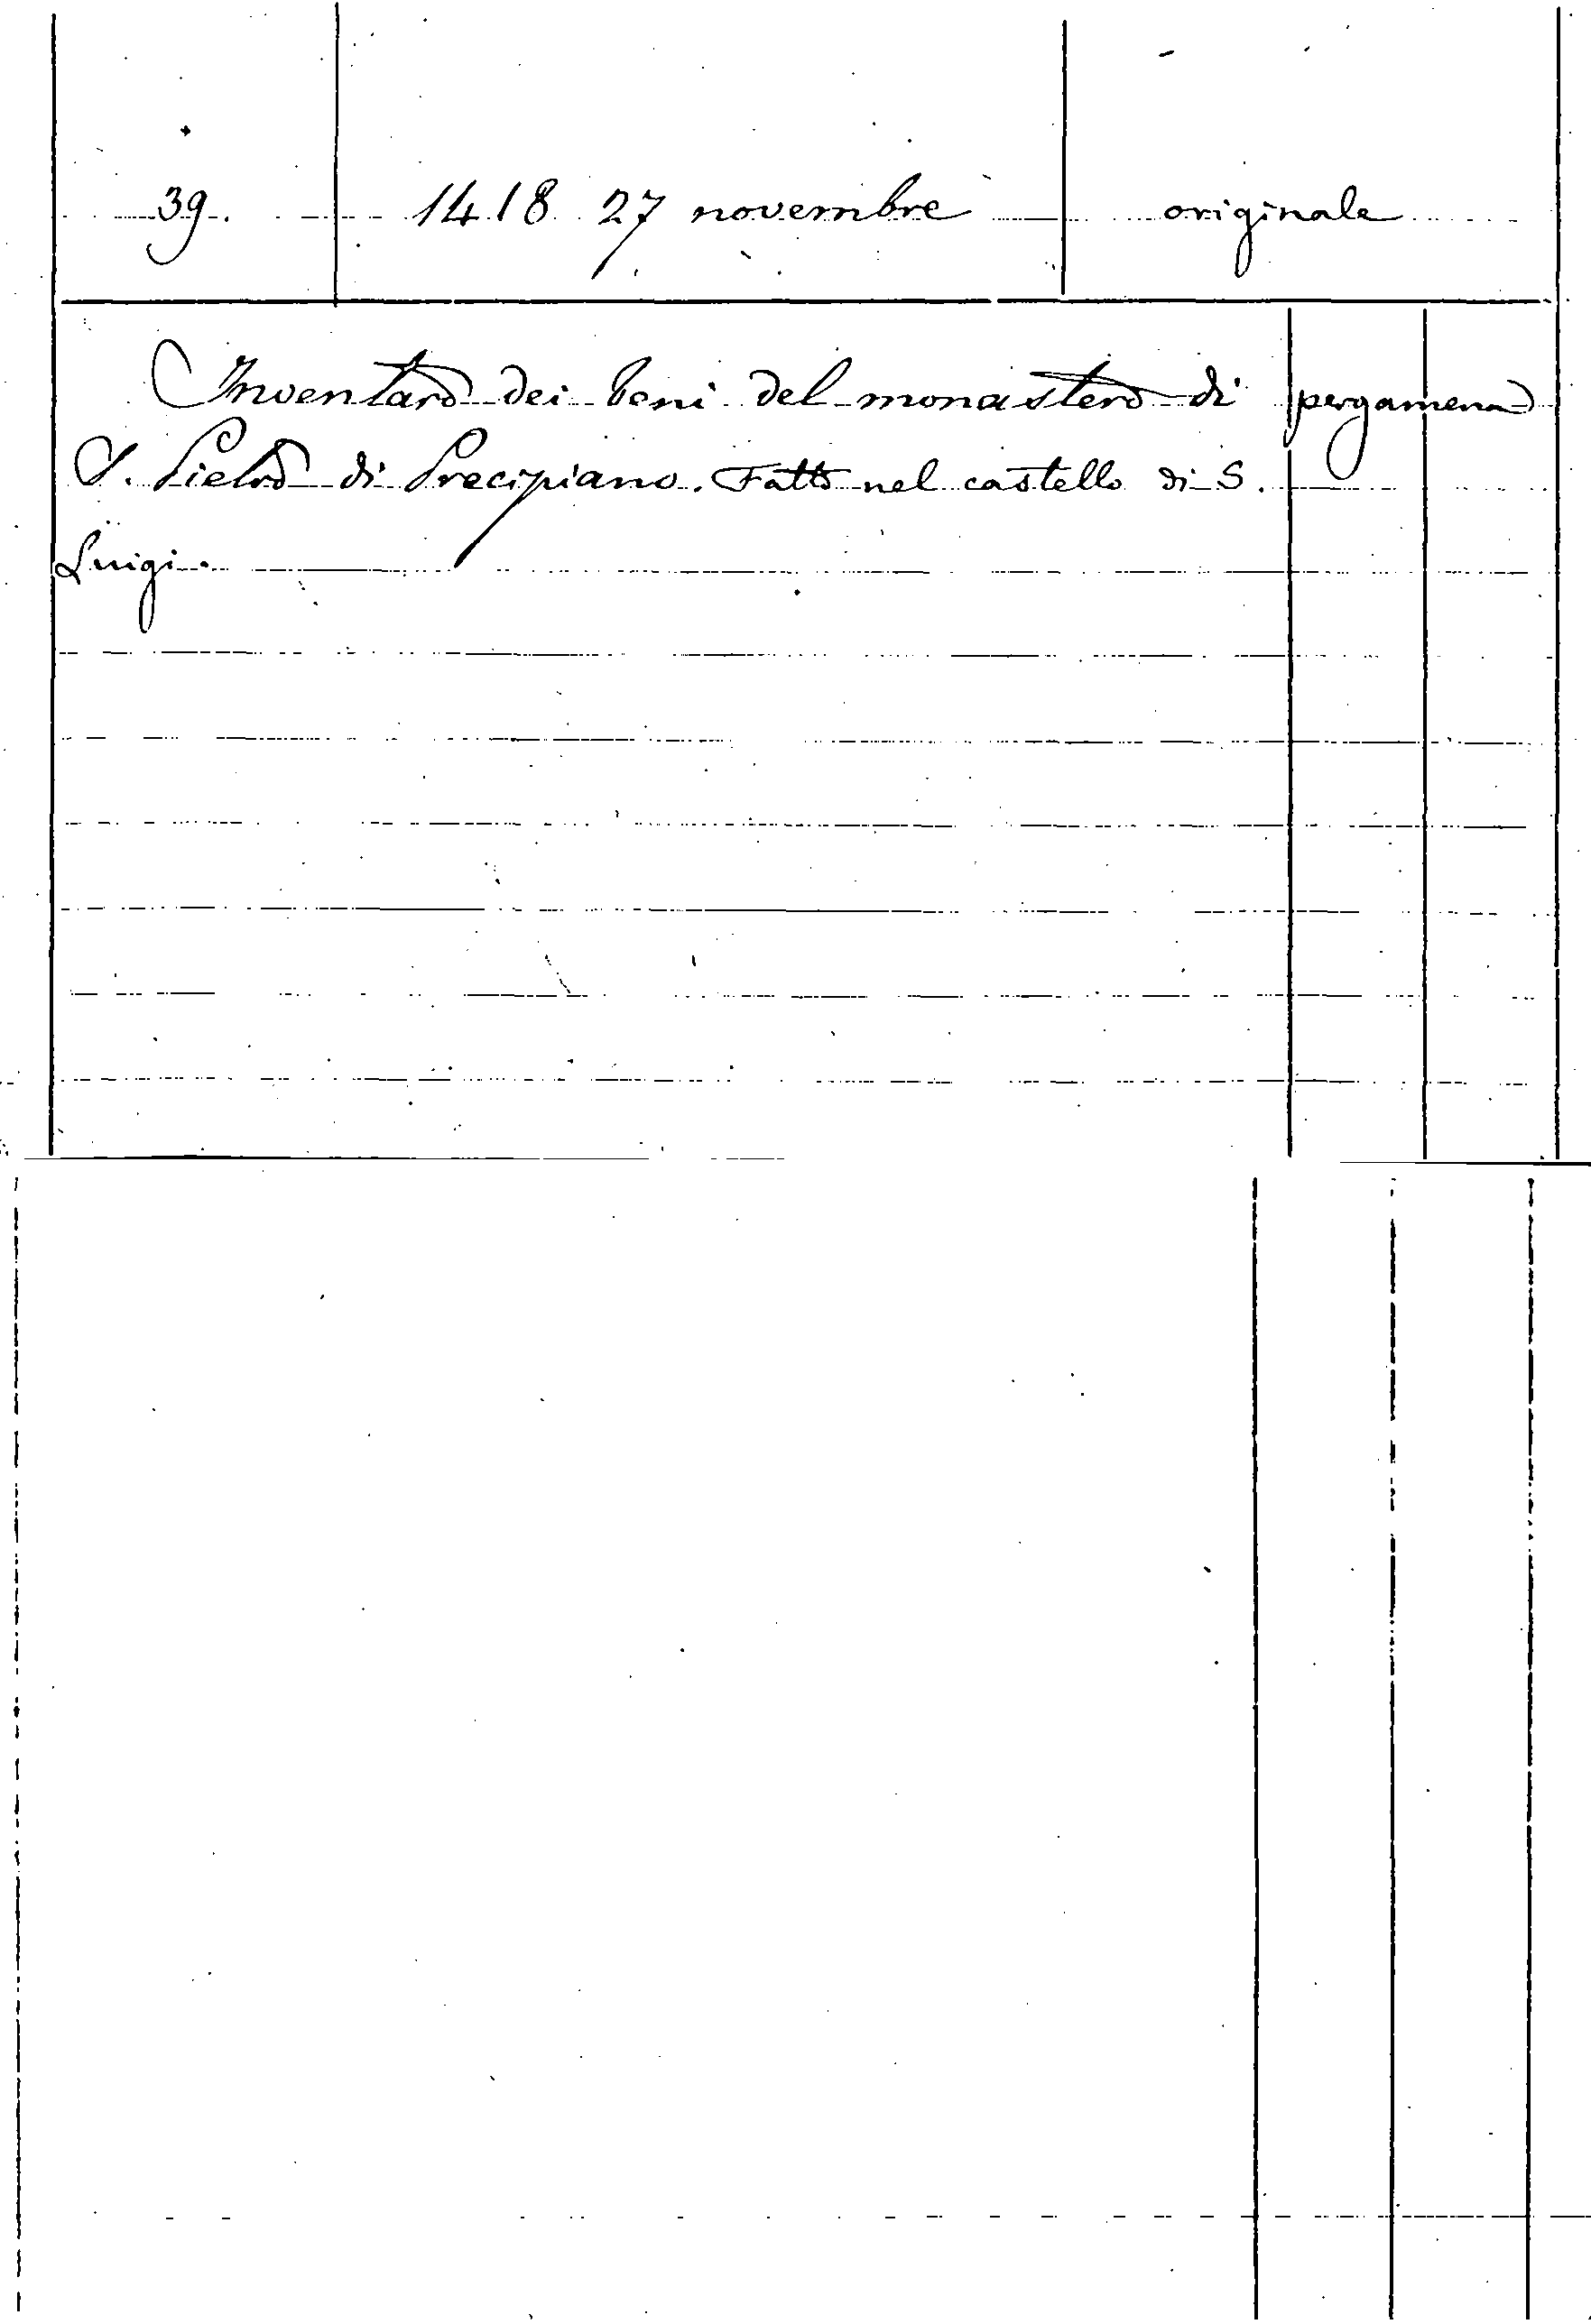 39. 1418 27 novembre originale
Inventaro dei beni del monastero di pergamena
S. Pietro di Precipiano. Fatto nel castello di S.
Luigi.